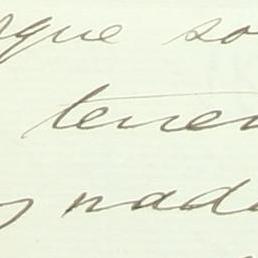 que so
tenen
nada